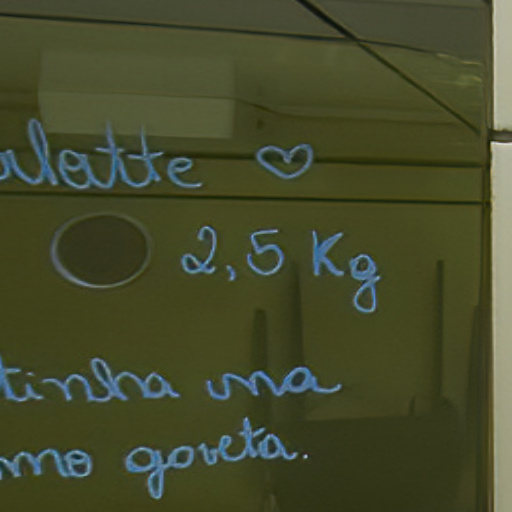 latte ♡
2,5 Kg
tinha ma
mo goveta.